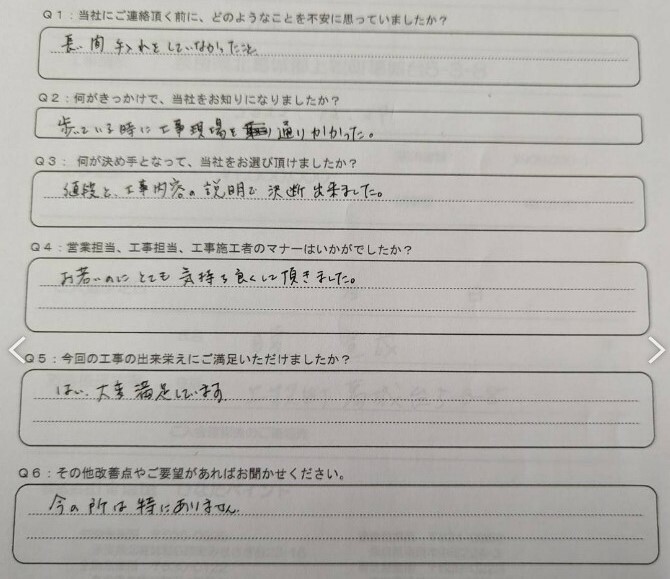 Q1：当社にご連絡頂く前に、どのようなことを不安に思っていましたか？
長い間手入れをしていなかったこと
Q2：何がきっかけで、当社をお知りになりましたか？
歩いている時に工事現場を通りかかった。
Q3： 何が決め手となって、当社をお選び頂けましたか？
値段と、工事内容の説明で決断出来ました。
Q4：営業担当、工事担当、工事施工者のマナーはいかがでしたか？
お若いのにとても気持ち良くして頂きました。
Q5：今回の工事の出来栄えにご満足いただけましたか？
はい、大変満足しています。
Q6：その他改善点やご要望があればお聞かせください。
今の所は特にありません。